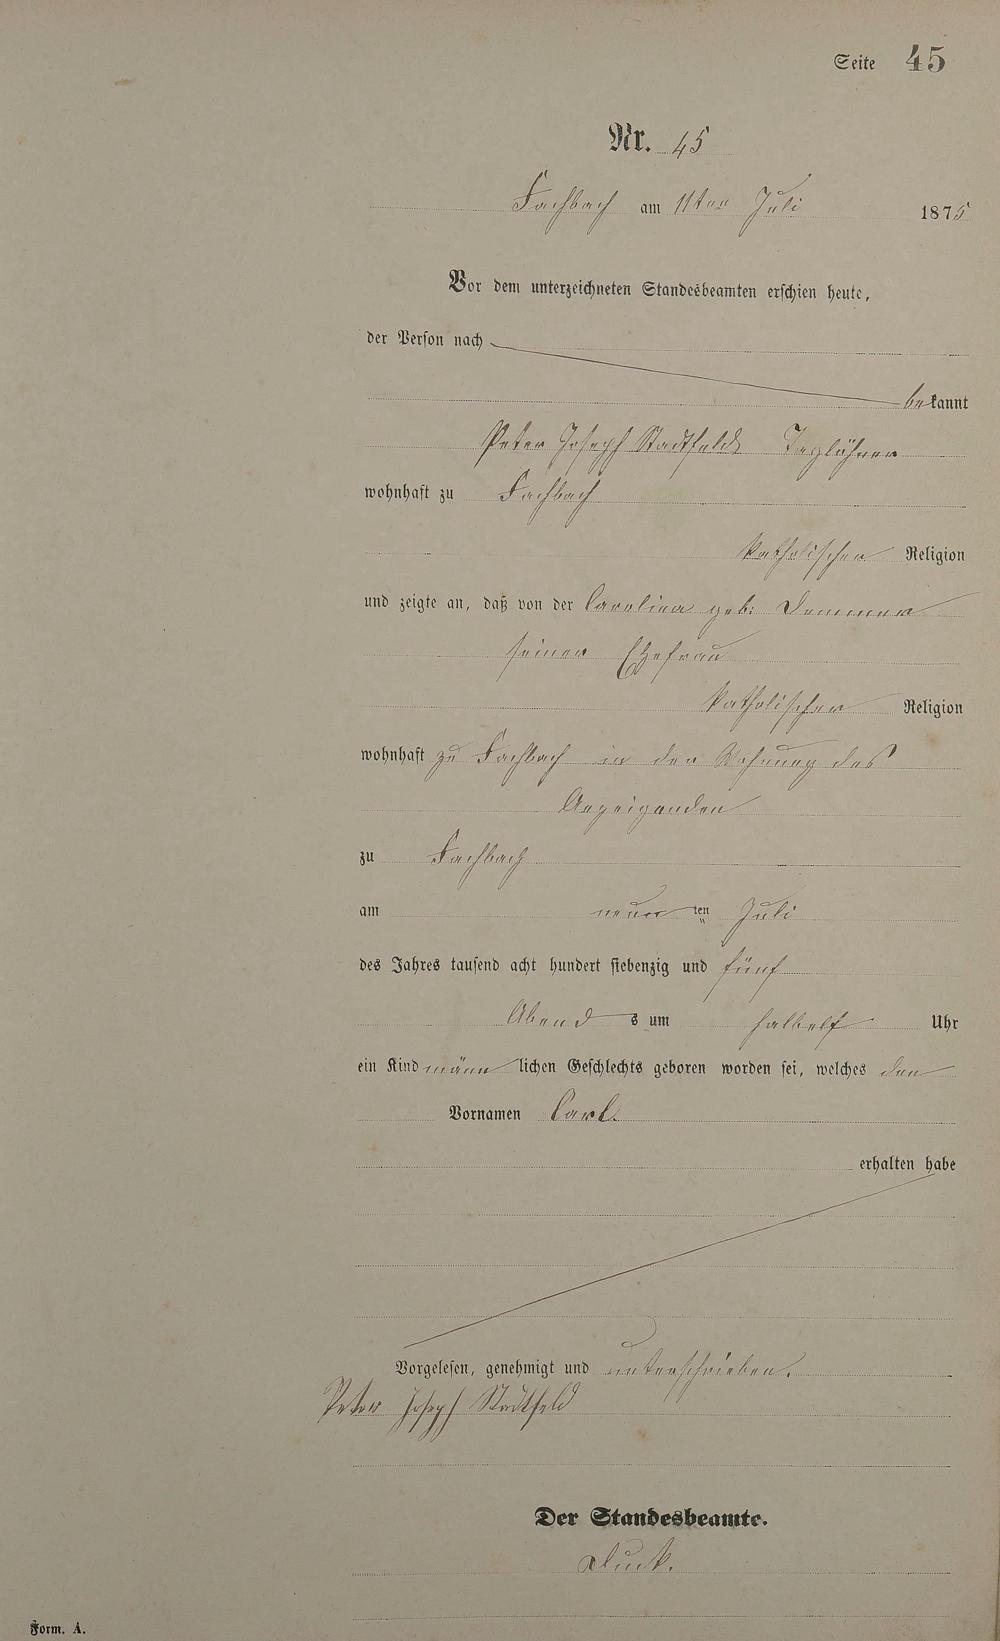 Seite 45
Nr. 45
Fachbach am 11ten Juli 1875
Vor dem unterzeichneten Standesbeamten erschien heute,
der Person nach
bekannt
Peter Joseph Stadtfeld Taglöhner
wohnhaft zu Fachbach
katholischer Religion
und zeigte an, daß von der Carolina geb:
seiner Ehefrau
katholischer Religion
wohnhaft zu Fachbach in der Wohnung des
Anzeigenden
zu Fachbach
am neunten Juli
des Jahres tausend acht hundert siebenzig und fünf
Abends um halbelf Uhr
ein Kind männlichen Geschlechts geboren worden sei, welches den
Vornamen Carl
erhalten habe
Vorgelesen, genehmigt und unterschrieben.
Peter Joseph Stadtfeld
Der Standesbeamte.
Form. A.